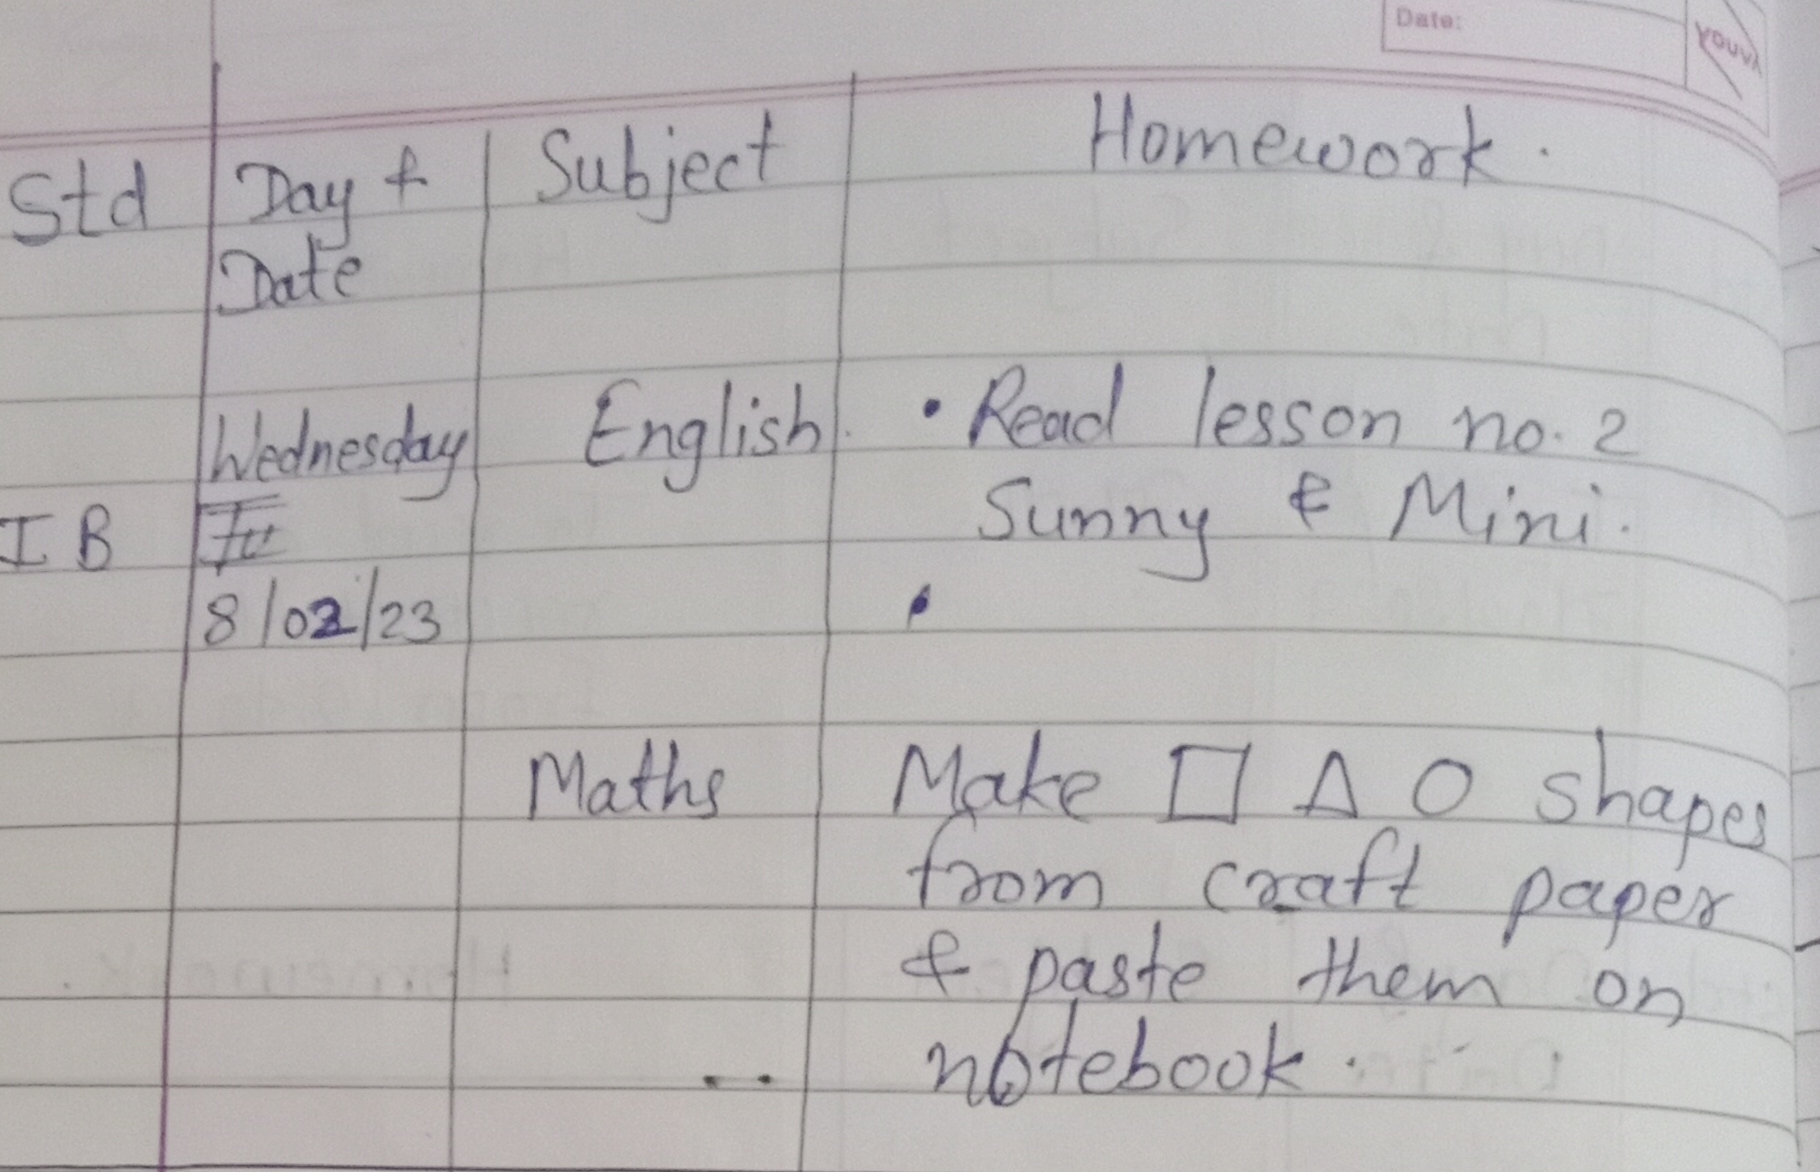 Date:
YOUVA
Std Day & Subject Homework.
Date
Wednesday English. • Read lesson no. 2
I B Sunny & Mini.
8/02/23 •
Maths Make □ △ ○ shapes
from craft paper
& paste them on
notebook.